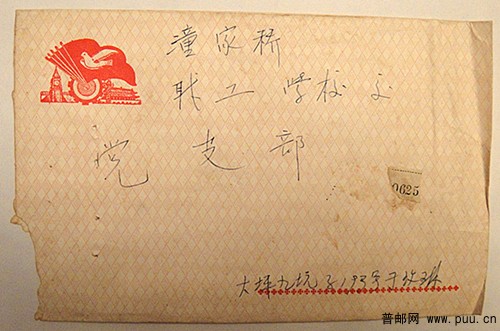 潼家桥
职工学校交
党支部
0625
大坪九坑子193号
普邮网 www.puu.cn